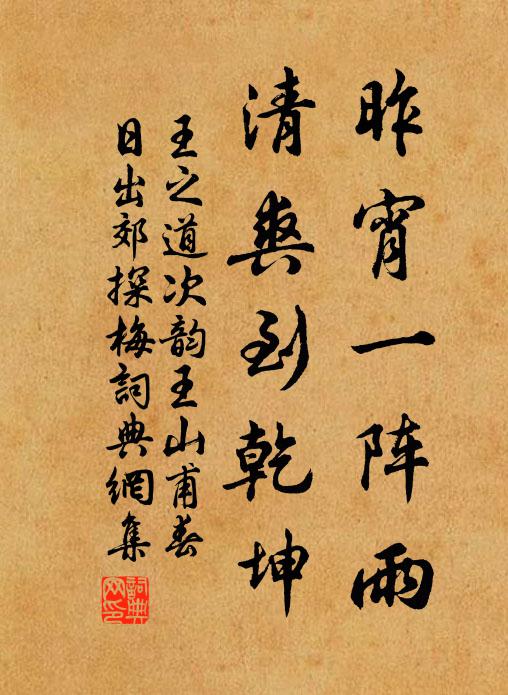 昨宵一阵雨
清爽到乾坤
王之道次韵王山甫春
日出郊探梅詞典網集
詞典
网印